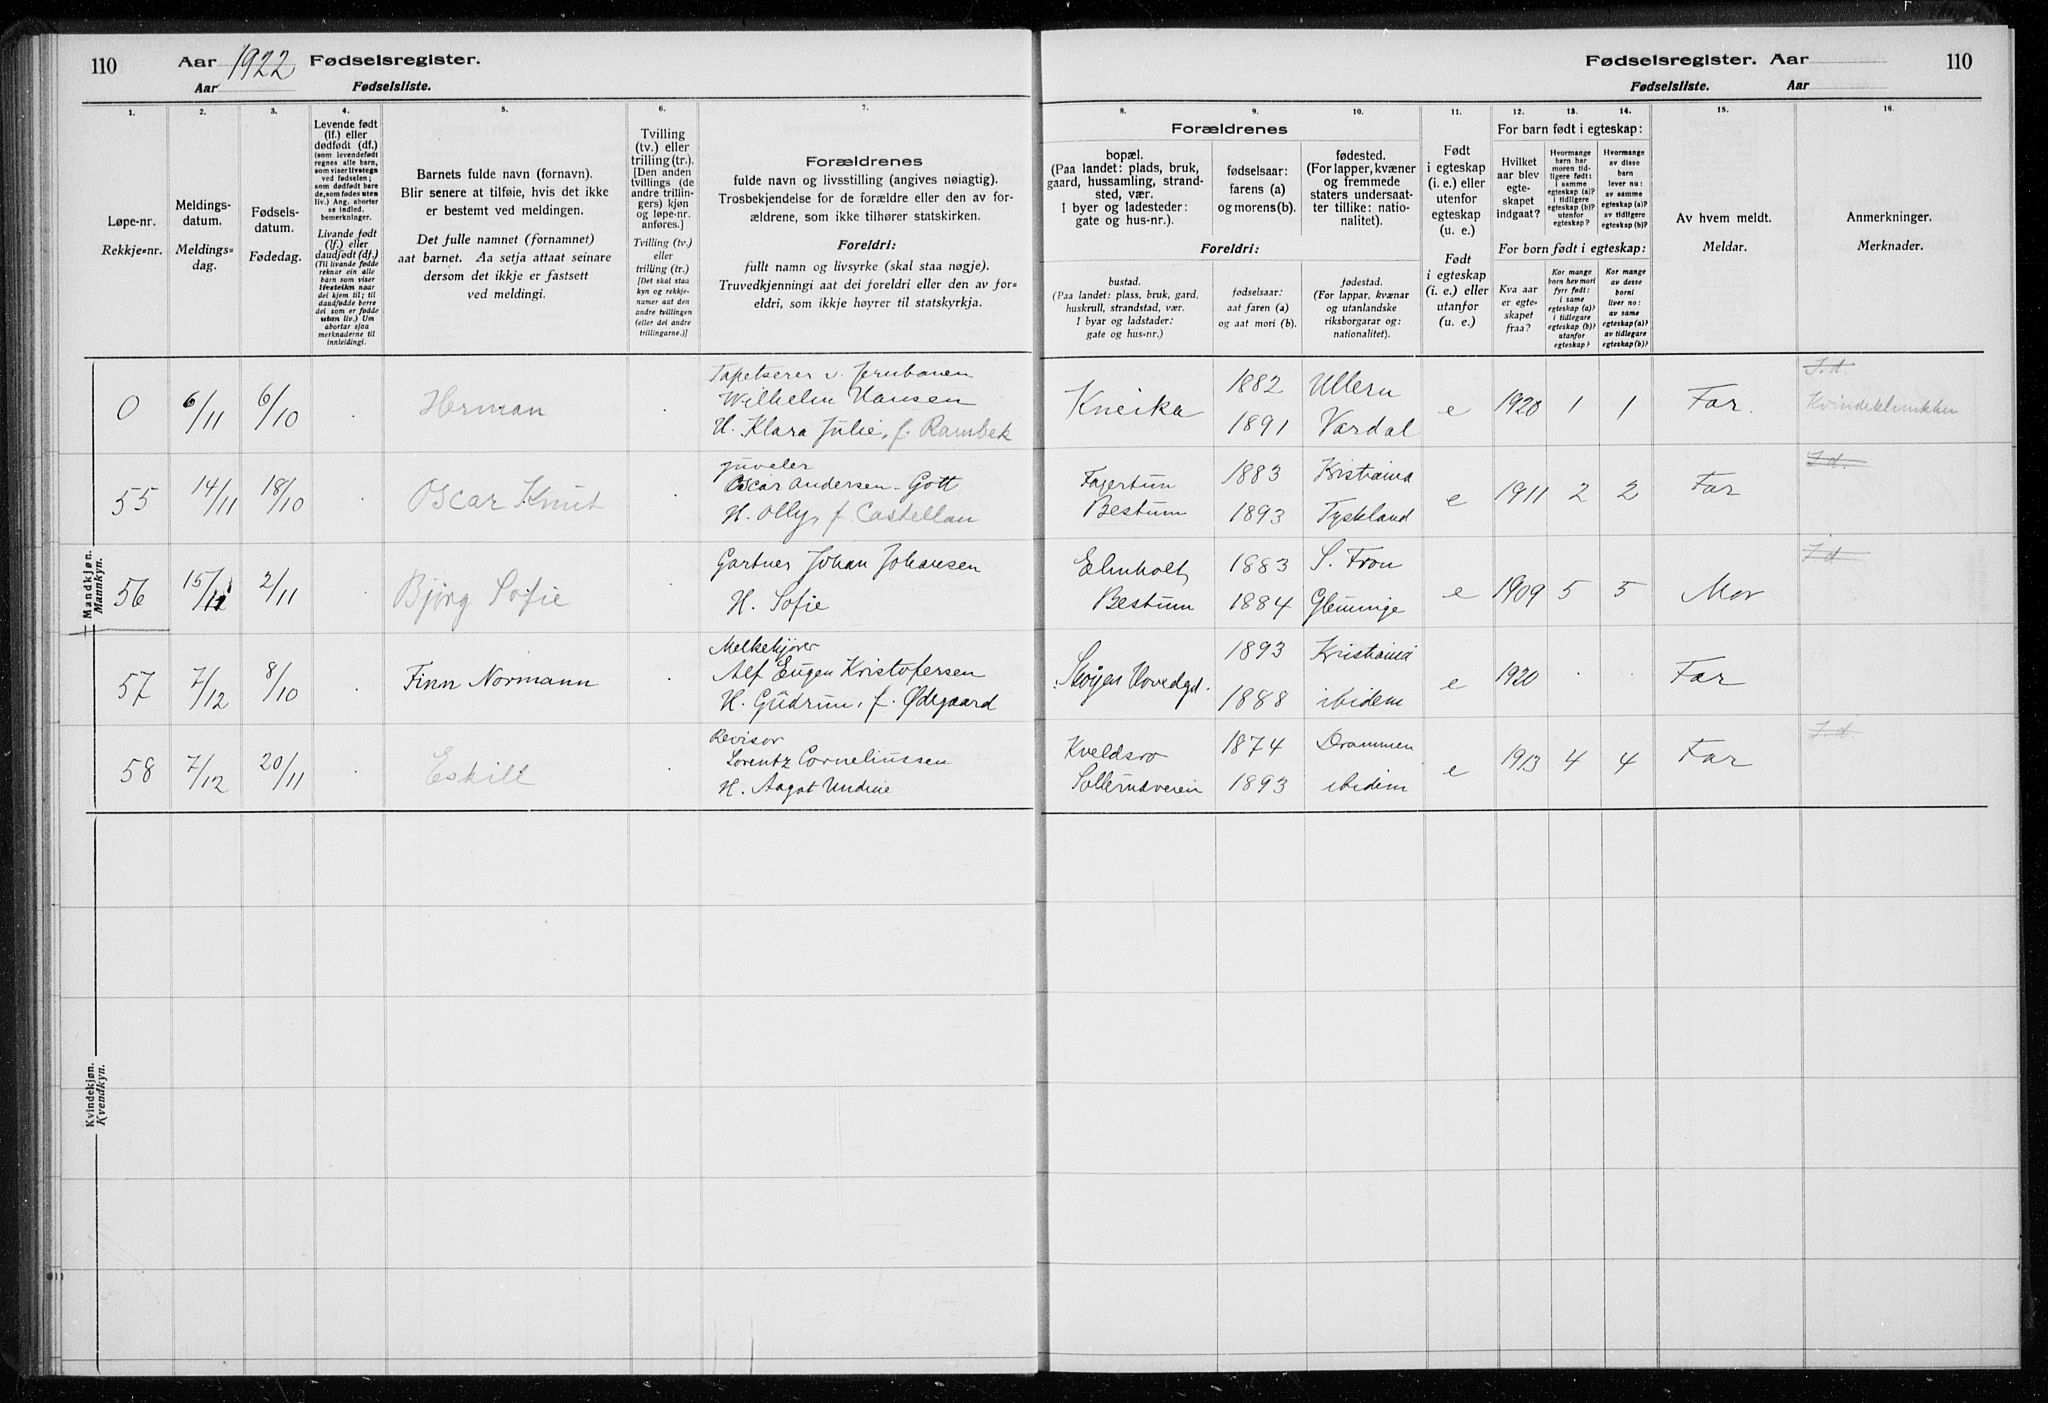 110
Aar 1922 Fødselsregister.
Aar Fødselsliste.
1.
2.
3.
4.
5.
6.
7.
Løpe-nr.
Rekkje=nr.
Meldings-
datum.
Meldings=
dag.
Fødsels-
datum.
Fødedag.
Levende født
(lf.) eller
dødfødt (df.)
(som levendefødt
regnes alle barn,
som viser livstegn
ved fødselen;
som dødfødt bare
de, som fødes uten
liv.) Ang. aborter
se indled.
bemerkninger.
Livande født
(lf.) eller
daudfødt (df.)
(Til livande fødde
reknar ein alle
born som viser
livsteikn naar
dei kjem til; til
daudfødde berre
dei som er fødde
utan liv.) Um
abortar sjaa
merknaderne til
innleidingi.
Barnets fulde navn (fornavn).
Blir senere at tilføie, hvis det ikke
er bestemt ved meldingen.
Det fulle namnet (fornamnet)
aat barnet. Aa setja attaat seinare
dersom det ikkje er fastsett
ved meldingi.
Tvilling
(tv.) eller
trilling (tr.).
[Den anden
tvillings (de
andre trillin-
gers) kjøn
og løpe-nr.
anføres.]
Tvilling (tv.)
eller
trilling (tr.)
[Det skal staa
kyn og rekkje-
numer aat den
andre tvillingen
(eller dei andre
trillingarne.)]
Forældrenes
fulde navn og livsstilling (angives nøiagtig).
Trosbekjendelse for de forældre eller den av for-
ældrene, som ikke tilhører statskirken.
Foreldri:
fullt namn og livsyrke (skal staa nøgje).
Truvedkjenningi aat dei foreldri eller den av fo-
eldri, som ikkje høyrer til statskyrkja.
Mandkjøn.
Mannkyn.
0 6/11 6/10 Herman
Tapetserer v. Jernbanen
Wilhelm Hansen
H. Klara Julie, f. Rambek
55 14/11 18/10 Oscar Knut
juveler
Oscar Andersen-Gott
H. Olly, f. Castellan
56 15/11 2/11 Bjørg Sofie
Gartner Johan Johansen
H. Sofie
57 7/12 8/10 Finn Normann
Melkekjører
Alf Eugen Kristofersen
H. Gudrun, f. Ødegaard
58 7/12 20/11 Eskill
Revisor
Lorentz Corneliussen
H. Aagot Undine
Kvindekjøn.
Kvendkyn.
Fødselsregister. Aar 110
Fødselsliste. Aar
8.
9.
10.
11.
12.
13.
14.
15.
16.
Forældrenes
bopæl.
(Paa landet: plads, bruk,
gaard, hussamling, strand-
sted, vær.
I byer og ladesteder:
gate og hus-nr.).
fødselsaar:
farens (a)
og morens(b).
fødested.
(For lapper, kvæner
og fremmede
staters undersaat-
ter tillike: natio-
nalitet).
Foreldri:
bustad.
(Paa landet: plass, bruk, gard,
huskrull, strandstad, vær.
I byar og ladstader:
gate og hus-nr.)
fødselsaar:
aat faren (a)
og aat mori (b).
fødestad.
(For lappar, kvænar
og utanlandske
riksborgarar og:
nationalitet).
Født
i egteskap
(i. e.) eller
utenfor
egteskap
(u. e.)
Født
i egteskap
(i. e.) eller
utanfor
(u. e.)
For barn født i egteskap:
Hvilket
aar blev
egte-
skapet
indgaat?
Hvormange
barn har
moren tid-
ligere født:
i samme
egteskap (a)?
i tidligere
egteskap (b)?
utenfor
egteskap?
Hvormange
av disse
barn
lever nu:
av samme
egteskap (a)?
av tidligere
egteskap (b)?
For born født i egteskap:
Kva aar
er egte-
skapet
fraa?
Kor mange
born hev mori
fyrr født:
i same
egteskap (a)?
i tidlegare
egteskap (b)?
utanfor
egteskap?
Kor mange
av desse
borni
liver no:
av same
egteskap (a)?
av tidlegare
egteskap (b)?
Av hvem meldt.
Meldar.
Anmerkninger.
Merknader.
Kneika
1882 Ullern
1891 Vardal
e 1920 1 1 Far.
I.d.
Kvindeklinikken
Fagertun
Bestum
1883 Kristiania
1893 Tyskland
e 1911 2 2 Far
I.d.
Elmholt,
Bestum
1883 S. Fron
1884 Glemminge
e 1909 5 5 Mor
I.d.
Skøyen Hovedgd.
1893 Kristiania
1888 ibidem
e 1920 Far
Kveldsro
Sollerudveien
1874 Drammen
1893 ibidem
e 1913 4 4 Far
I.d.